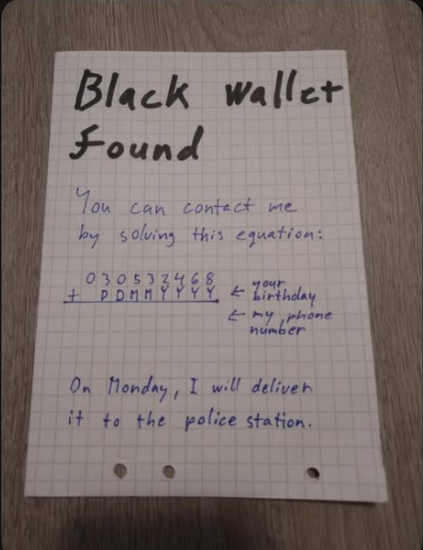 Black Wallet
Found
You can contact me
by solving this equation:
030532468
+ DDMMYYYY ← your
birthday
← my phone
number
On Monday, I will deliver
it to the police station.